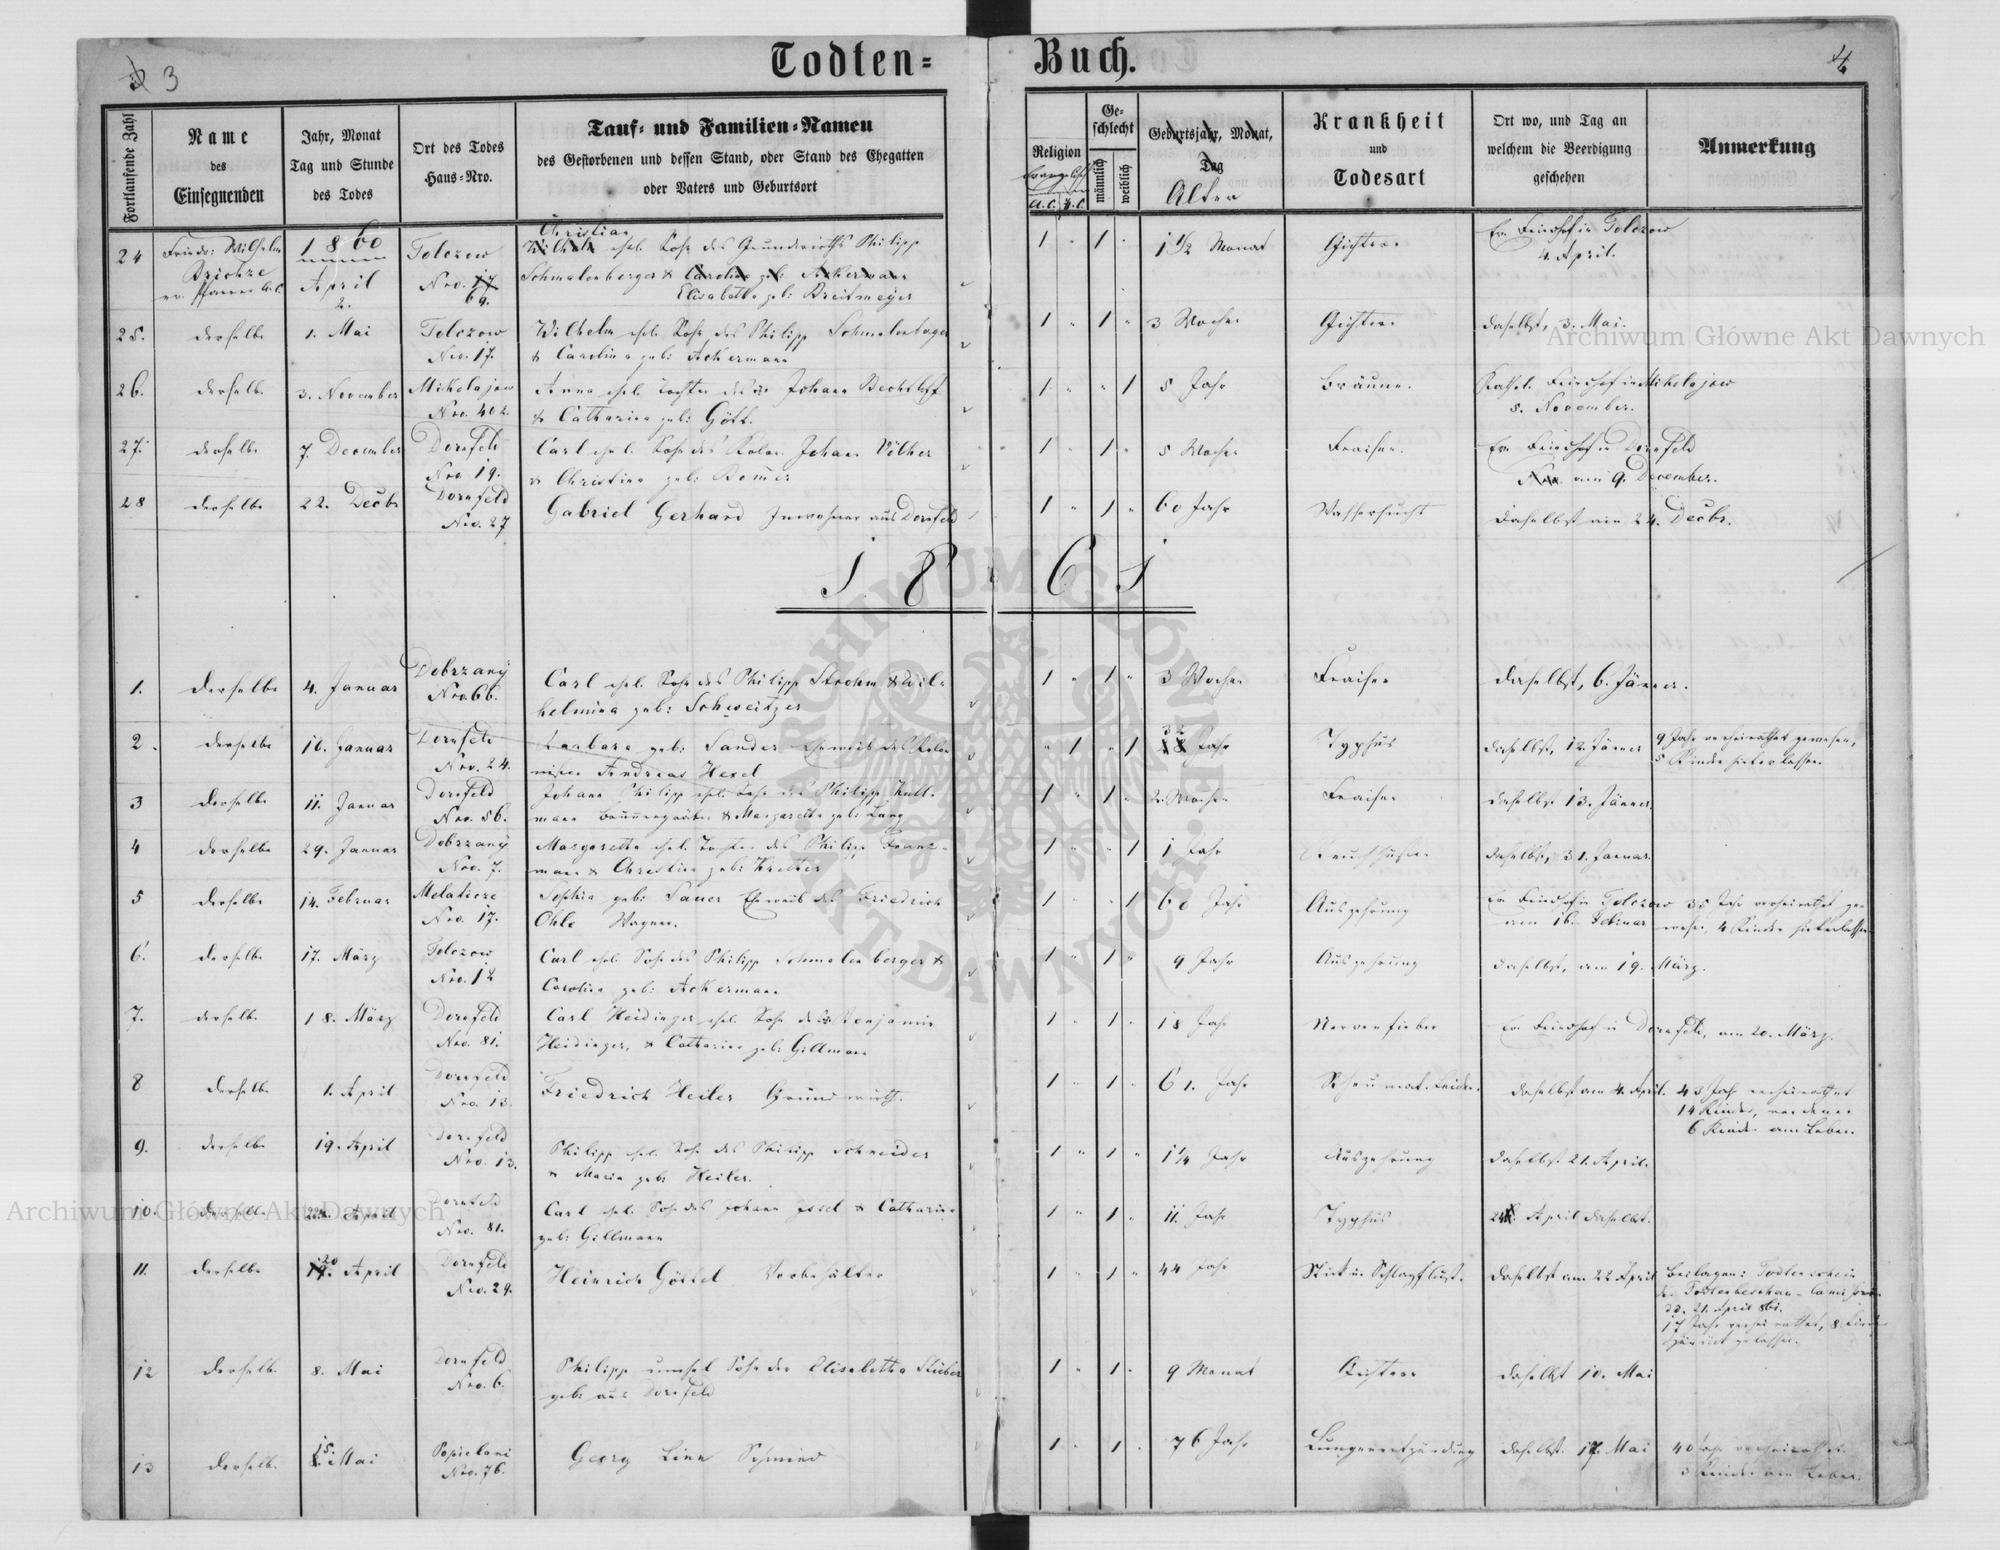 Todten-
Buch.
3
4
Fortlaufende Zahl
Name
des
Einsegnenden
Jahr, Monat
Tag und Stunde
des Todes
Ort des Todes
Haus-Nro.
Tauf- und Familien-Namen
des Gestorbenen und dessen Stand, oder Stand des Ehegatten
oder Vaters und Geburtsort
Religion
Evangelisch
A.C. H.C.
Ge-
schlecht
männlich
weiblich
Geburtsjahr, Monat,
Tag
Alter
Krankheit
und
Todesart
Ort wo, und Tag an
welchem die Beerdigung
geschehen
Anmerkung
24 Friedr: Wilhelm 1860 Tolczow Christian ehel. Sohn des Grundwirths Philipp 1 1 1 1/2 Monat Gichter Ev. Friedhof in Tolczow
ev. Pfarrer A.C. April Nro. 69. Schmalenberger & 4. April.
2. Elisabetha geb: Breitmeyer
25. derselbe 1. Mai Tolczow Wilhelm ehel. Sohn des Philipp Schmalenberger 1 1 3 Wochen Gichter daselbst, 3. Mai.
Nro. 17. & Carolina geb: Ackermann
26. derselbe 3. November Mikolajow Anna ehel. Tochter des Johann Bechtloff 1 1 5 Jahr Bräune. Kathol. Friedhof in Mikolajow
Nro. 402. & Catharina geb: Gött. 5. November.
27. derselbe 7. December Dornfeld Carl ehel. Sohn des Kolon. Johann Völker 1 1 5 Wochen Fraisen. Ev. Friedhof in Dornfeld
Nro. 19. & Christina geb: Bomer am 9. December.
28 derselbe 22. Decbr Dornfeld Gabriel Gerhard Inwohner aus Dornfeld 1 1 60 Jahr Wassersucht daselbst am 24. Decbr.
Nro. 27
1861
1. derselbe 4. Januar Dobrzany Carl ehel. Sohn des Philipp Strohm & Wil- 1 1 3 Wochen Fraisen daselbst, 6. Jänner.
Nro. 66. helmina geb: Schweitzer
2. derselbe 10. Januar Dornfeld Barbara geb: Sander Eheweib des Kolo- 1 1 32 Jahr Typhus daselbst, 12. Jänner 9 Jahr verheirathet gewesen,
Nro. 24. nisten Andreas Hexel 5 Kinder hinterlassen.
3 derselbe 11. Januar Dornfeld Johann Philipp ehel. Sohn des Philipp Kull- 1 1 2 Wochen Fraisen daselbst 13. Jänner
Nro. 56. mann Brunnengräber & Margaretha geb: Lang
4 derselbe 29. Januar Dobrzany Margaretha ehel. Tochter des Philipp Franz- 1 1 1 Jahr Keuchhusten daselbst, 31. Januar.
Nro. 7. mann & Christina geb: Kretter
5 derselbe 14. Februar Sophia geb: Sauer Eheweib des Friedrich 1 1 60 Jahr Auszehrung Ev. Friedhof in Tolczow 35 Jahr verheirathet ge-
Nro. 17. Ohle Wagner. am 16. Februar wesen, 4 Kinder hinterlassen
6. derselbe 17. März Tolczow Carl ehel. Sohn des Philipp Schmalenberger & 1 1 9 Jahr Auszehrung daselbst, am 19. März.
Nro. 17 Carolina geb: Ackermann.
7. derselbe 18. März Dornfeld Carl Heidinger ehel. Sohn des Benjamin 1 1 18 Jahr Nervenfieber Ev. Friedhof in Dornfeld, am 20. März.
Nro. 81. Heidinger, & Catharina geb: Gillmann
8 derselbe 1. April Dornfeld Friedrich Heiler Grundwirth. 1 1 61. Jahr Rheumat. Leiden. daselbst am 4. April. 43 Jahr verheirathet
Nro. 13. 14 Kinder, von denen
6 Kinder am Leben.
9. derselbe 19. April Dornfeld Philipp ehel. Sohn des Philipp Schneider 1 1 1 1/4 Jahr Auszehrung daselbst 21. April.
Nro. 13. & Maria geb: Heiler.
10. derselbe 22. April Dornfeld Carl ehel. Sohn des Johann Jssel & Catharina 1 1 11. Jahr Typhus 24. April daselbst.
Nro. 81. geb: Gillmann
11. derselbe 20 April Dornfeld Heinrich Göttel Vorbehälter 1 1 44 Jahr Stick u. Schlagfluss. daselbst am 22 April Beilagen: Todtenschein
Nro. 29. der Todtenbeschau-Comission
dd. 21. April 861.
17 Jahr verheirathet, 8 Kinder
zurückgelassen.
12 derselbe 8. Mai Dornfeld Philipp unehel Sohn der Elisabetha Stuber 1 1 9 Monat Gichter daselbst 10. Mai
Nro. 6. geb: aus Dornfeld
13 derselbe 15. Mai Popielani Georg Linn Schmied 1 1 76 Jahr Lungenentzündung daselbst. 17. Mai 40 Jahr verheirathet.
Nro. 76. 3 Kinder am Leben.
Archiwum Główne Akt Dawnych
Archiwum Główne Akt Dawnych
ARCHIWUM GŁÓWNE AKT DAWNYCH